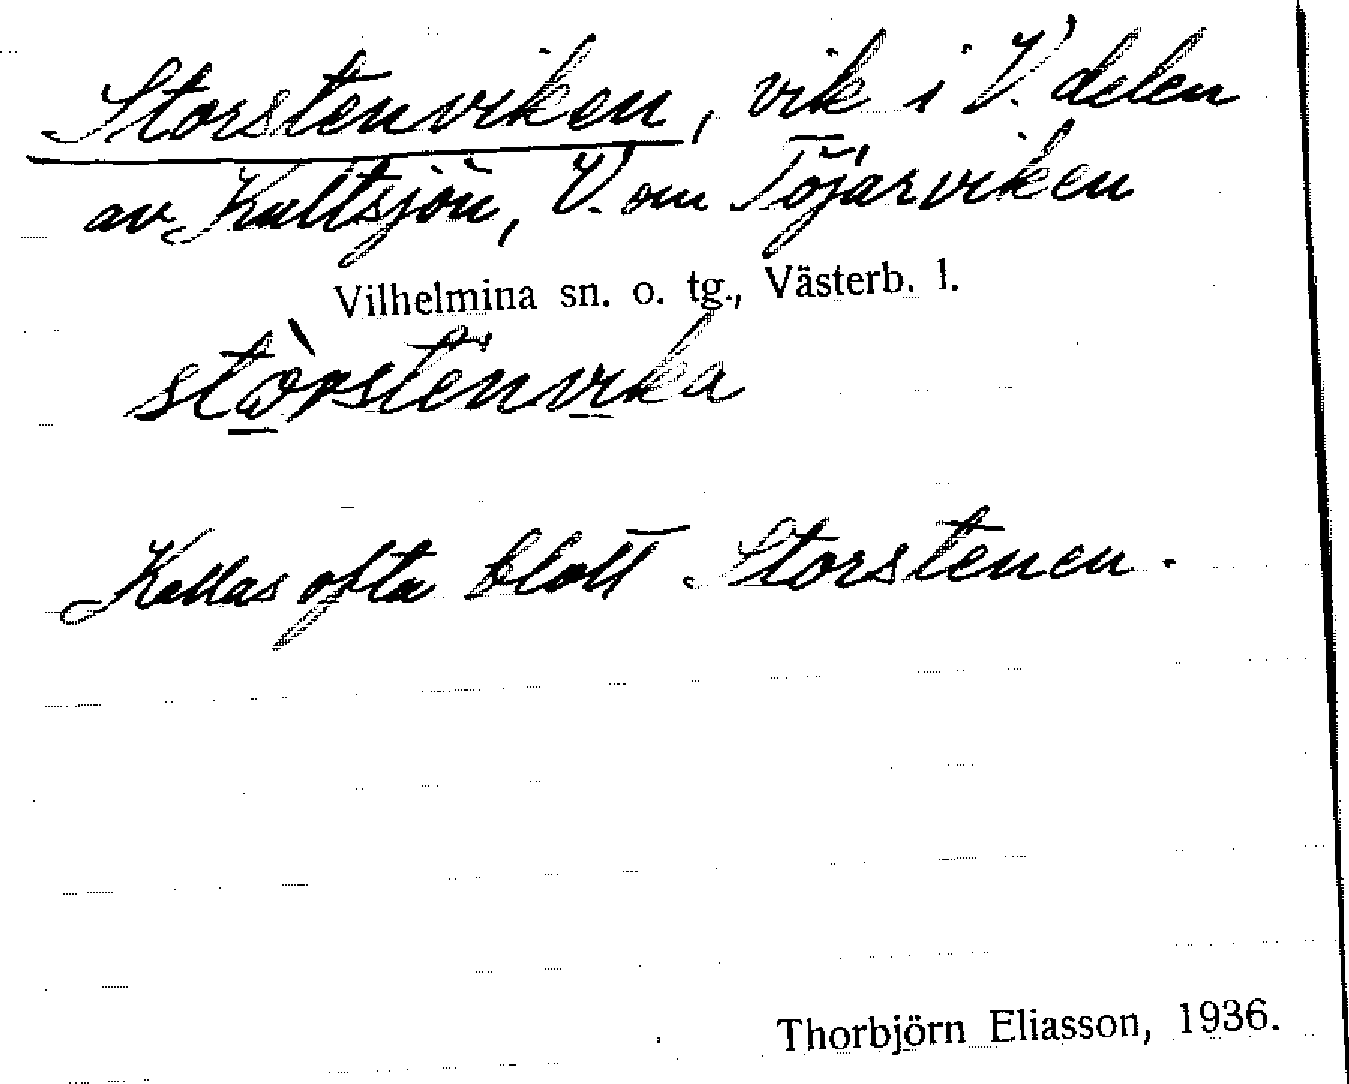 Storstenviken, vik i V. delen
av Kultsjön, V. om Töjarviken
Vilhelmina sn. o. tg., Västerb. l.
stòrstenvika
Kallas ofta blott Storstenen.
Thorbjörn Eliasson, 1936.